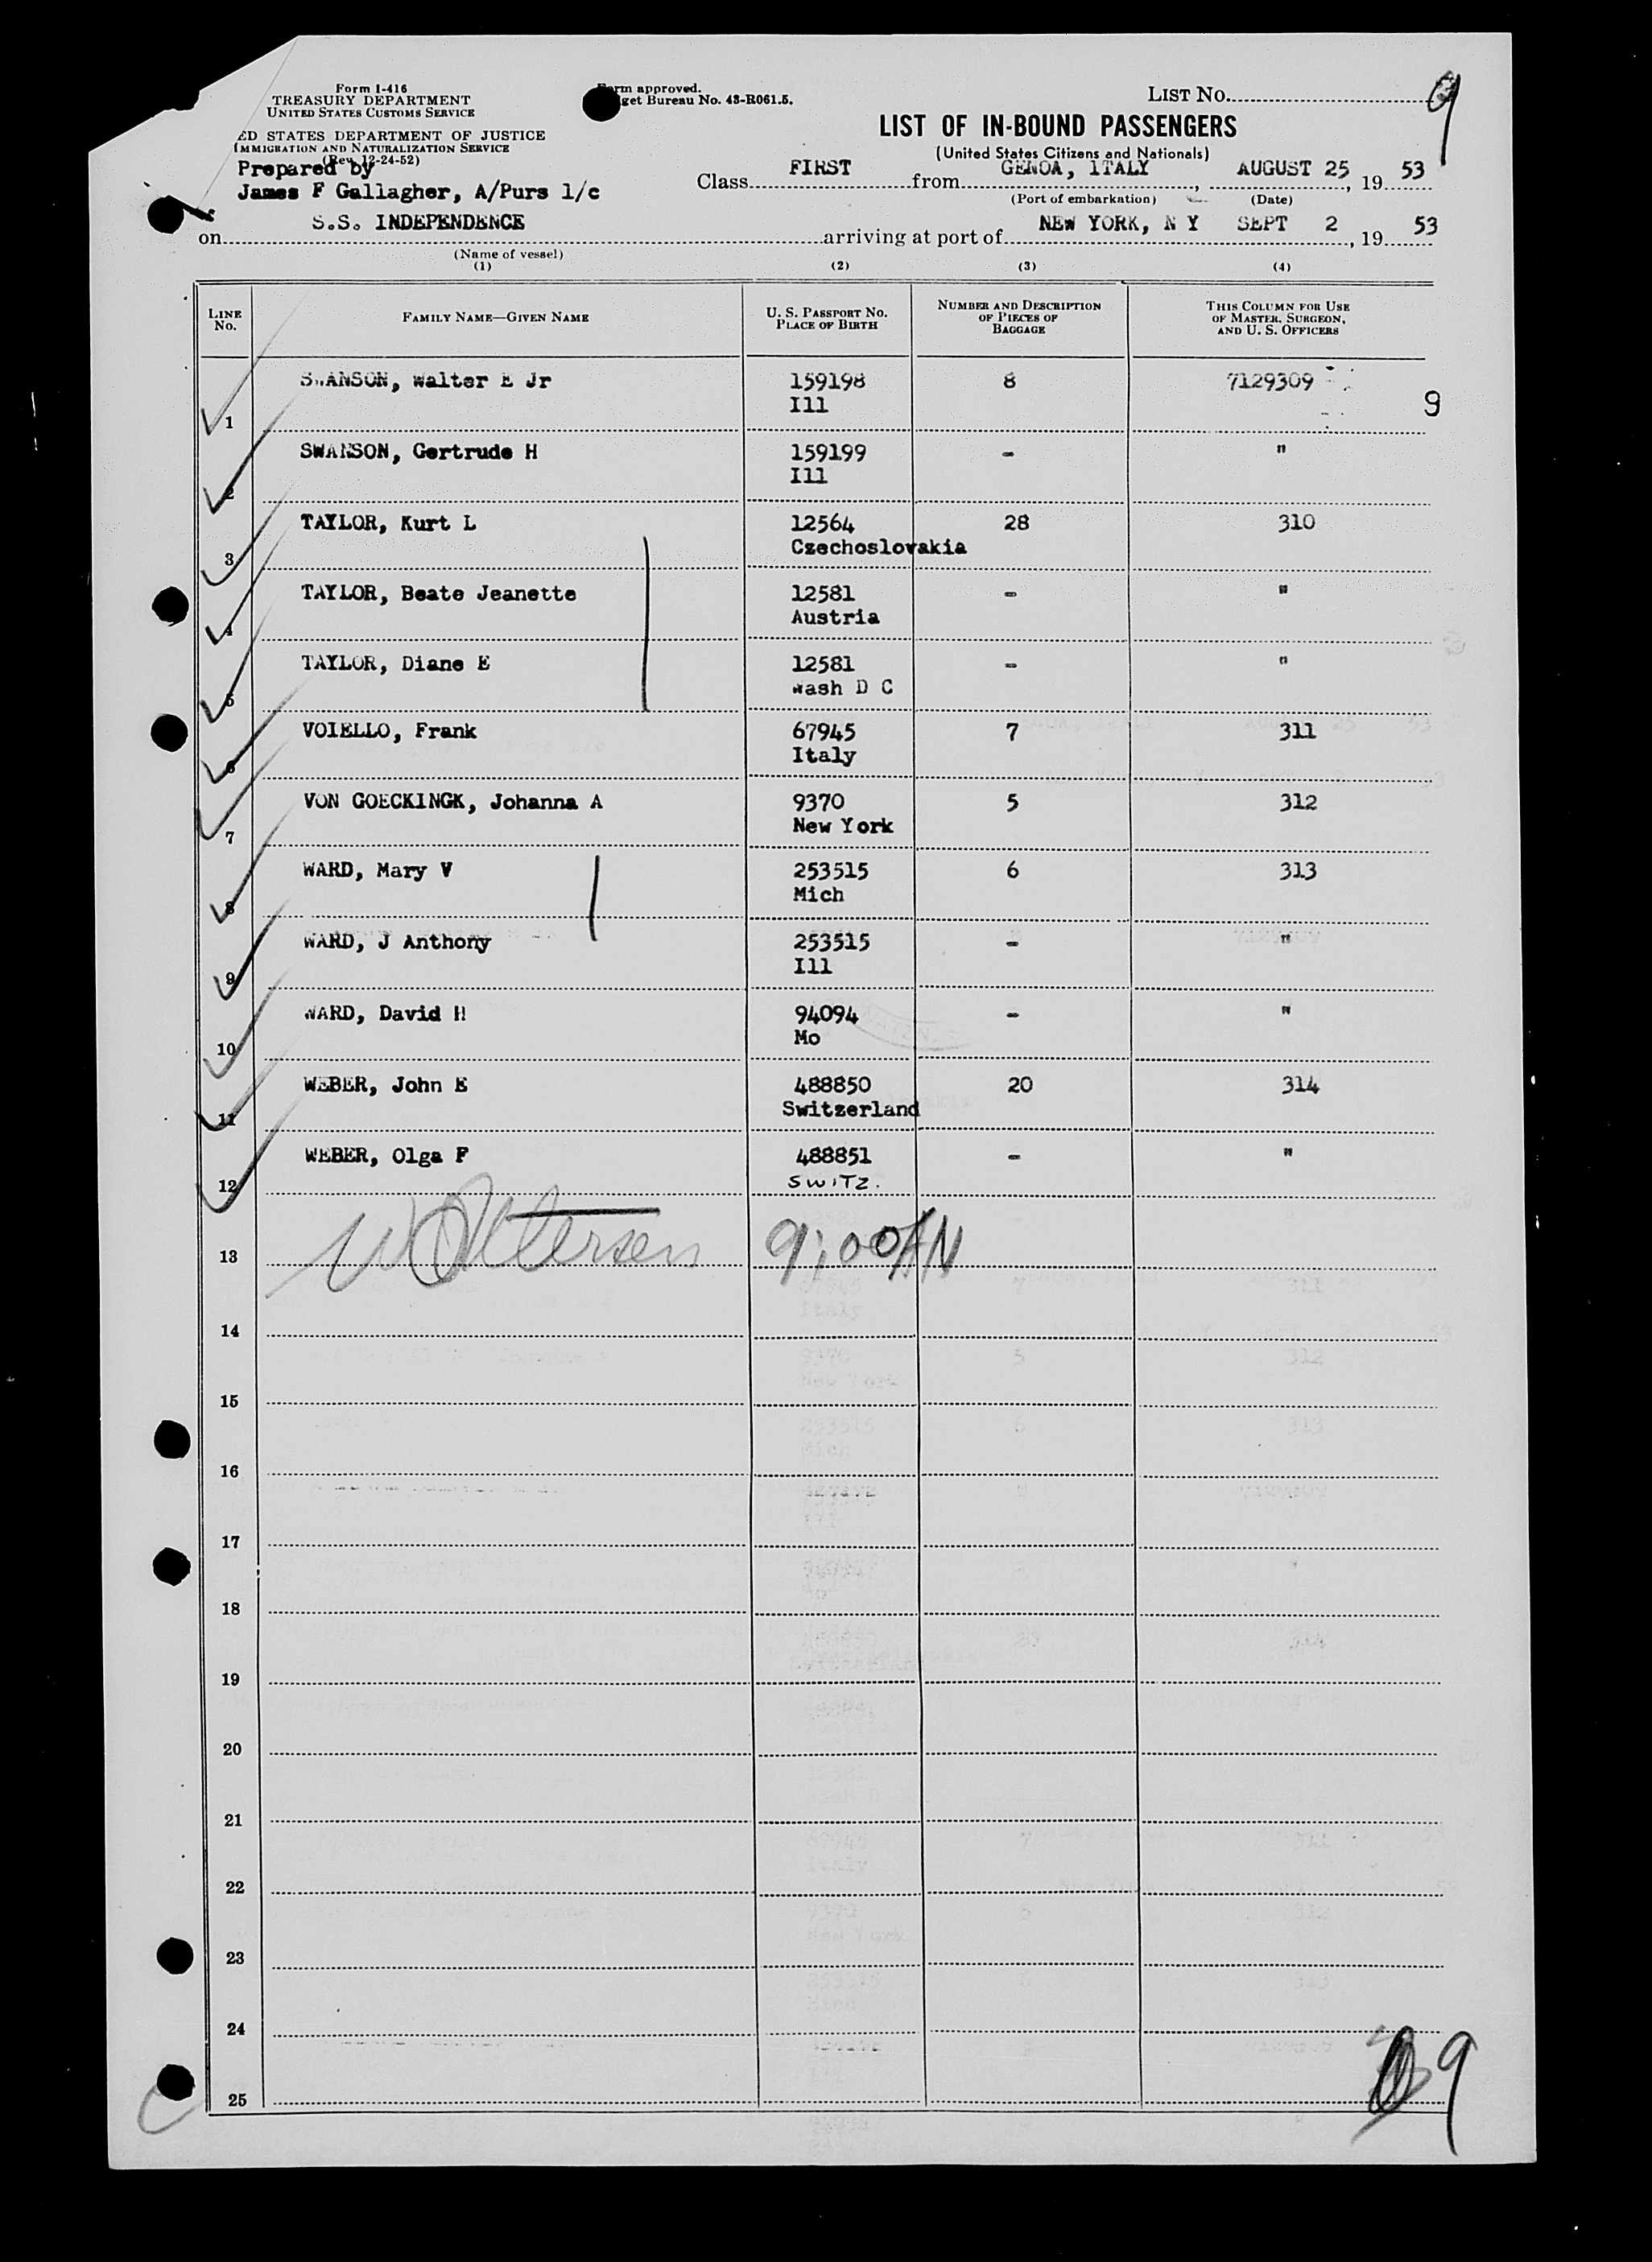 Form I-416
TREASURY DEPARTMENT
UNITED STATES CUSTOMS SERVICE
ED STATES DEPARTMENT OF JUSTICE
IMMIGRATION AND NATURALIZATION SERVICE
(Rev. 12-24-52)
Prepared by
James F Gallagher, A/Purs 1/c
rm approved.
get Bureau No. 43-R061.5.
LIST No. 9
LIST OF IN-BOUND PASSENGERS
(United States Citizens and Nationals)
Class FIRST from GENOA, ITALY, AUGUST 25, 19 53
(Port of embarkation) (Date)
on S.S. INDEPENDENCE arriving at port of NEW YORK, N Y SEPT 2, 19 53
(Name of vessel)
(1) (2) (3) (4)
LINE No. FAMILY NAME—GIVEN NAME U. S. PASSPORT NO. PLACE OF BIRTH NUMBER AND DESCRIPTION OF PIECES OF BAGGAGE THIS COLUMN FOR USE OF MASTER, SURGEON, AND U. S. OFFICERS
1 SWANSON, Walter E Jr 159198 8 7129309
Ill 9
2 SWANSON, Gertrude H 159199 - "
Ill
3 TAYLOR, Kurt L 12564 28 310
Czechoslovakia
4 TAYLOR, Beate Jeanette 12581 - "
Austria
5 TAYLOR, Diane E 12581 - "
Wash D C
6 VOIELLO, Frank 67945 7 311
Italy
7 VON GOECKINGK, Johanna A 9370 5 312
New York
8 WARD, Mary V 253515 6 313
Mich
9 WARD, J Anthony 253515 - "
Ill
10 WARD, David H 94094 - "
Mo
11 WEBER, John E 488850 20 314
Switzerland
12 WEBER, Olga F 488851 - "
SWITZ.
13 9:00 AN
14
15
16
17
18
19
20
21
22
23
24
25
9